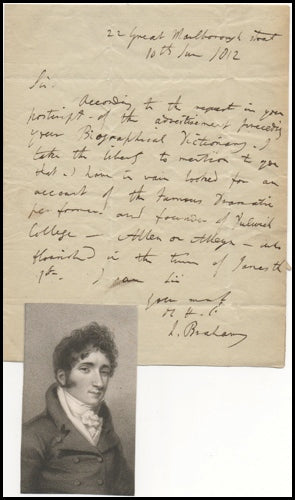 22 Great Marlborough Street
10th Jun 1812
Sir.
According to the request in your
postscript of the advertisement preceding
your Biographical Dictionary, I
take the liberty to mention to you
that I have in vain looked for an
account of the famous Dramatic
performer and founder of Dulwich
College — Allen or Alleyn — who
flourished in the time of James the
1st — I am Sir
your most
H S
J. Braham